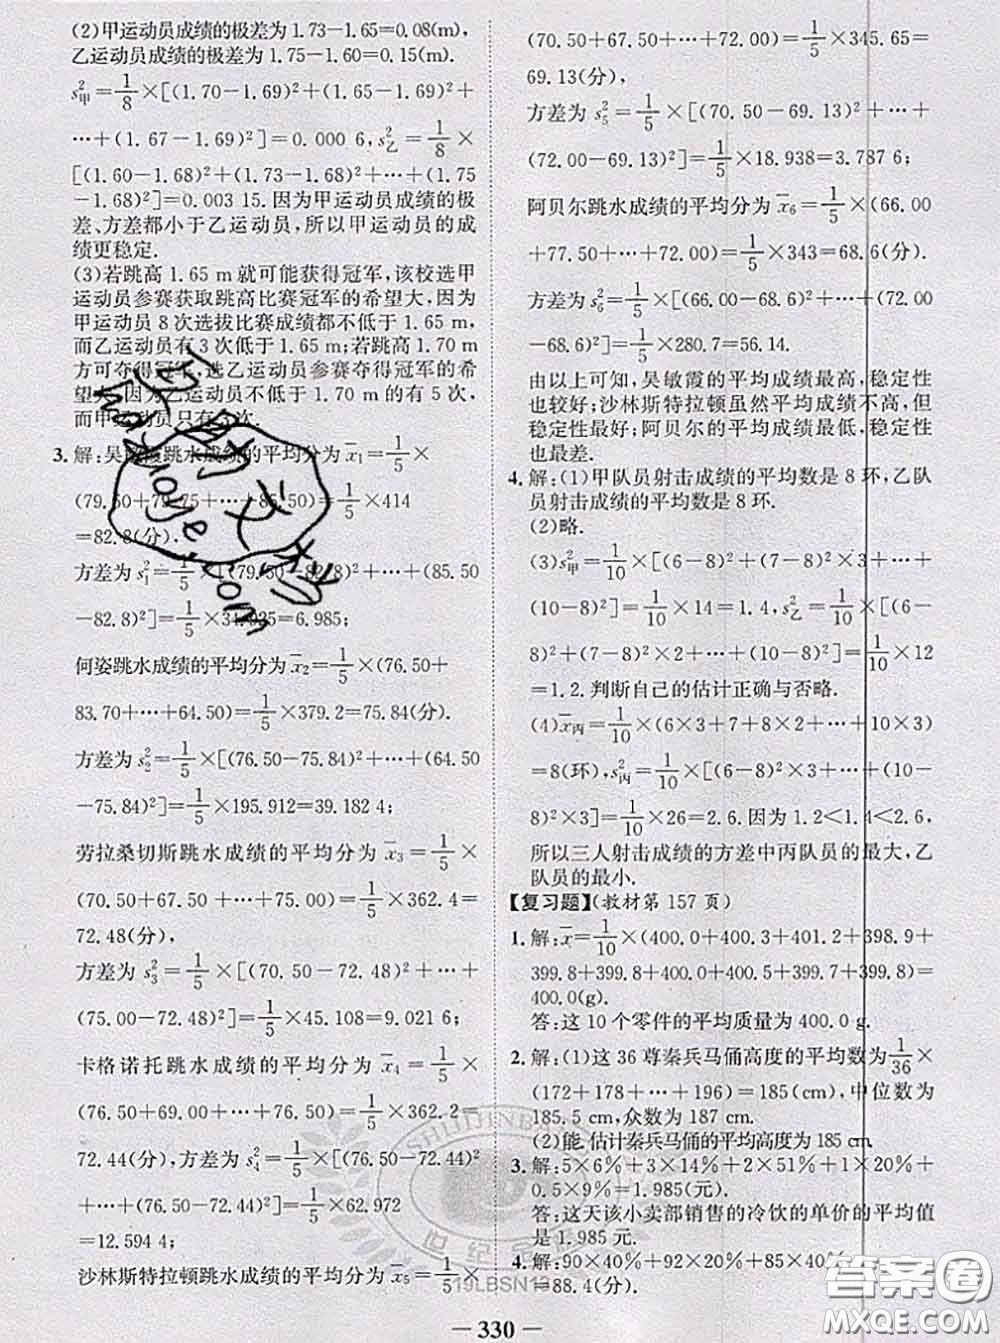 (2)甲运动员成绩的极差为 1.73-1.65=0.08(m),
乙运动员成绩的极差为 1.75-1.60=0.15(m).
s²甲=1/8×[(1.70-1.69)²+(1.65-1.69)²+
…+(1.67-1.69)²]=0.000 6,s²乙=1/8×
[(1.60-1.68)²+(1.73-1.68)²+…+(1.75
-1.68)²]=0.003 15. 因为甲运动员成绩的极
差、方差都小于乙运动员,所以甲运动员的成
绩更稳定.
(3)若跳高 1.65 m 就可能获得冠军,该校选甲
运动员参赛获取跳高比赛冠军的希望大,因为
甲运动员 8 次选拔比赛成绩都不低于 1.65 m,
而乙运动员有 3 次低于 1.65 m;若跳高 1.70 m
方可夺得冠军,选乙运动员参赛夺得冠军的希
望大,因为乙运动员不低于 1.70 m 的有 5 次,
而甲运动员只有 次.
3. 解:吴敏霞跳水成绩的平均分为 x̄₁=1/5×
(79.50+79.75+…+85.50)=1/5×414
=82.8(分).
方差为 s₁²=1/5×[(79.50-82.8)²+…+(85.50
-82.8)²]=1/5×34.925=6.985;
何姿跳水成绩的平均分为 x̄₂=1/5×(76.50+
83.70+…+64.50)=1/5×379.2=75.84(分).
方差为 s₂²=1/5×[(76.50-75.84)²+…+(64.50
-75.84)²]=1/5×195.912=39.182 4;
劳拉桑切斯跳水成绩的平均分为 x̄₃=1/5×
(70.50+67.50+…+75.00)=1/5×362.4=
72.48(分),
方差为 s₃²=1/5×[(70.50-72.48)²+…+
(75.00-72.48)²]=1/5×45.108=9.021 6;
卡格诺托跳水成绩的平均分为 x̄₄=1/5×
(76.50+69.00+…+76.50)=1/5×362.2=
72.44(分),方差为 s₄²=1/5×[(76.50-72.44)²
+…+(76.50-72.44)²]=1/5×62.972
=12.594 4;
沙林斯特拉顿跳水成绩的平均分为 x̄₅=1/5×
(70.50+67.50+…+72.00)=1/5×345.65=
69.13(分),
方差为 s₅²=1/5×[(70.50-69.13)²+…+
(72.00-69.13)²]=1/5×18.938=3.787 6;
阿贝尔跳水成绩的平均分为 x̄₆=1/5×(66.00
+77.50+…+72.00)=1/5×343=68.6(分).
方差为 s₆²=1/5×[(66.00-68.6)²+…+(72.00
-68.6)²]=1/5×280.7=56.14.
由以上可知,吴敏霞的平均成绩最高,稳定性
也较好;沙林斯特拉顿虽然平均成绩不高,但
稳定性最好;阿贝尔平均成绩最低,稳定性
也最差.
4. 解:(1)甲队员射击成绩的平均数是 8 环,乙队
员射击成绩的平均数是 8 环.
(2)略.
(3)s²甲=1/10×[(6-8)²+(7-8)²×2+…+
(10-8)²]=1/10×14=1.4,s²乙=1/10×[(6-
8)²+(7-8)²×2+…+(10-8)²]=1/10×12
=1.2. 判断自己的估计正确与否略.
(4)x̄丙=1/10×(6×3+7+8×2+…+10×3)
=8(环),s²丙=1/10×[(6-8)²×3+…+(10-
8)²×3]=1/10×26=2.6. 因为 1.2<1.4<2.6,
所以三人射击成绩的方差中丙队员的最大,乙
队员的最小.
【复习题】(教材第 157 页)
1. 解:x̄=1/10×(400.0+400.3+401.2+398.9+
399.8+399.8+400.0+400.4+399.7+399.9)=
400.0(g).
答:这 10 个零件的平均质量为 400.0 g.
2. 解:(1)这 36 尊秦兵马俑高度的平均数为 1/36×
(172+178+…+196)=185(cm),中位数为
185.5 cm,众数为 187 cm.
(2)能. 估计秦兵马俑的平均高度为 185 cm.
3. 解:5×6%+3×14%+2×51%+1×20%+
0.5×9%=1.985(元).
答:这天该小卖部销售的冷饮的单价的平均值
是 1.985 元.
4. 解:90×40%+92×20%+85×
=88.4(分).
19LBSN13
— 330 —
答案圈
MXQE.COM